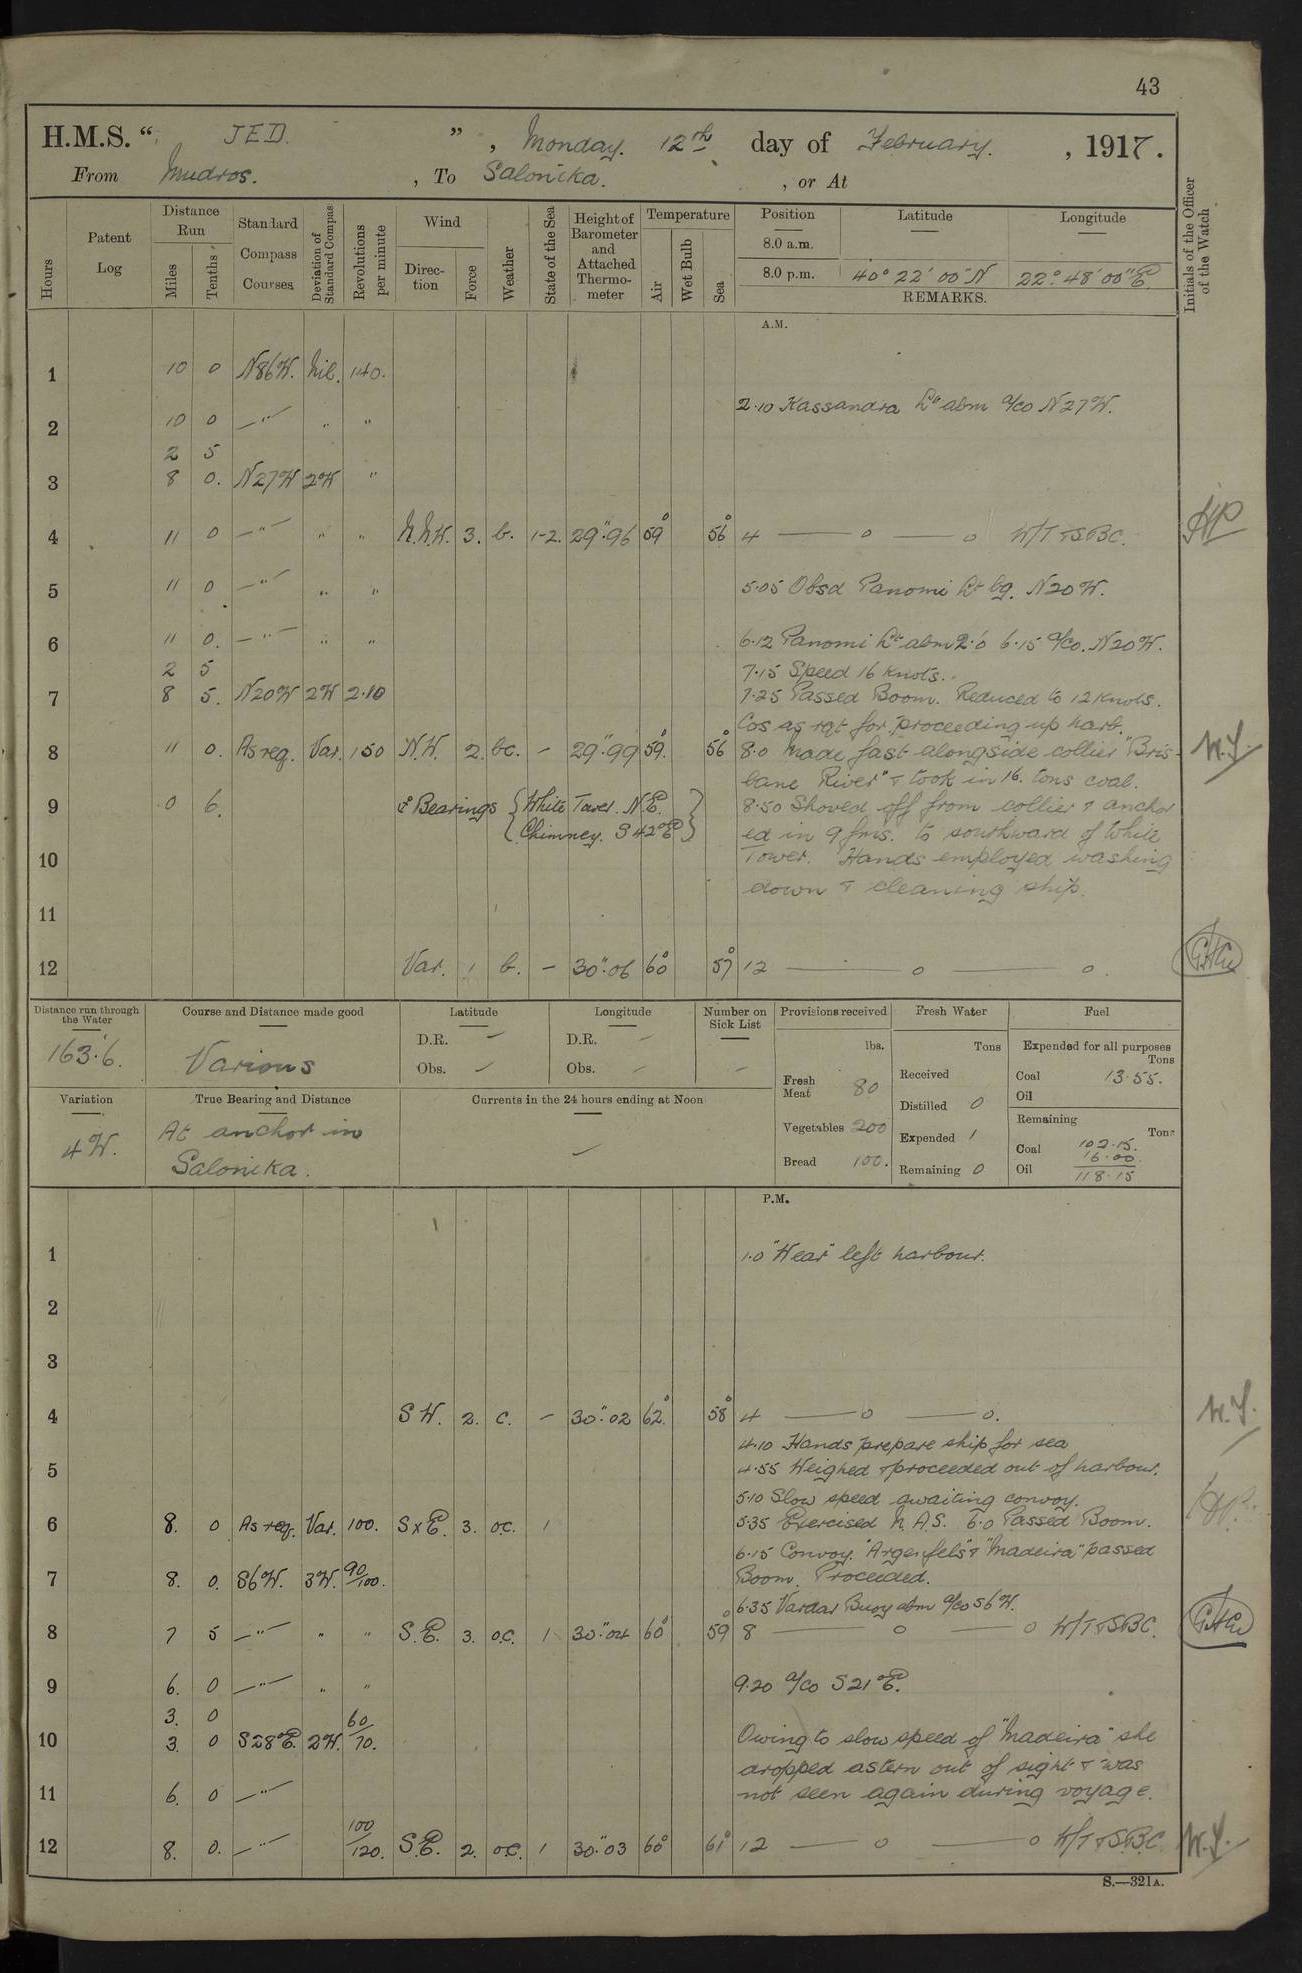 43
H.M.S. " JED. ", Monday. 12th day of February. , 1917.
From Mudros. , To Salonika. , or At
Hours
Patent Log
Distance Run
Miles
Tenths
Standard Compass Courses
Deviation of Standard Compass
Revolutions per minute
Wind
Direction
Force
Weather
State of the Sea
Height of Barometer and Attached Thermometer
Temperature
Air
Wet Bulb
Sea
Position Latitude Longitude
8.0 a.m.
8.0 p.m. 40° 22' 00" N 22° 48' 00" E.
REMARKS.
Initials of the Officer of the Watch
A.M.
1 10 0 N86W. Nil. 140.
2.10 Kassandra Lt abm a/co N27W.
2 10 0 —"— " "
2 5
3 8 0. N27W 2W "
4 11 0 —"— " " N.N.W. 3. b. 1-2. 29".96 59° 56° 4 — o — o W/T & SBC.
5 11 0 —"— " " 5.05 Obsd Panomi Lt bg. N20W.
6 11 0. —"— " " 6.12 Panomi Lt abm 2.0 6.15 a/co. N20W.
2 5 7.15 Speed 16 knots.
7 8 5. N20W 2W 210 7.25 Passed Boom. Reduced to 12 knots.
Cos as rqt for proceeding up harb.
8 11 0. As req. Var. 150 N.W. 2. bc. - 29".99 59°. 56° 8.0 Made fast alongside collier "Bris-
bane River" & took in 16. tons coal.
9 0 6. Bearings { White Tower. N.E. 8.50 Shoved off from collier & anchor
Chimney. S42°E } ed in 9 fms. to southward of White
10 Tower. Hands employed washing
down & cleaning ship.
11
12 Var. 1 b. - 30".06 60° 57° 12 — o — o.
Distance run through the Water
163.6.
Course and Distance made good
Various
Latitude
D.R. -
Obs. -
Longitude
D.R. -
Obs. -
Number on Sick List
-
Provisions received
lbs.
Fresh Meat 80
Vegetables 200
Bread 100.
Fresh Water
Tons
Received
Distilled 0
Expended 1
Remaining 0
Fuel
Expended for all purposes
Tons
Coal 13.55.
Oil
Remaining
Tons
Coal 102.15.
16.00.
Oil 118.15
Variation
4W.
True Bearing and Distance
At anchor in
Salonika.
Currents in the 24 hours ending at Noon
-
P.M.
1 1.0 "Wear" left harbour.
2
3
4 SW. 2. c. - 30".02 62° 58° 4 — o — o.
W.Y.
4.10 Hands prepare ship for sea
5 4.55 Weighed & proceeded out of harbour.
5.10 Slow speed awaiting convoy.
6 8. 0 As req. Var. 100. SxE. 3. oc. 1 5.35 Exercised N.A.S. 6.0 Passed Boom.
6.15 Convoy. "Argenfels" & "Madeira" passed
7 8. 0. S6W. 3W. 90/100. Boom. Proceeded.
6.35 Vardar Buoy abm a/co S6W.
8 7 5 —"— " " S.E. 3. o.c. 1 30".04 60° 59° 8 — o — o W/T & SBC.
9 6. 0 —"— " " 9.20 a/co S21°E.
3. 0
10 3. 0 S28°E. 2W. 60/70. Owing to slow speed of "Madeira" she
dropped astern out of sight & was
11 6. 0 —"— not seen again during voyage.
12 8. 0. —"— 100/120. S.E. 2. o.c. 1 30".03 60° 61° 12 — o — o W/T & S.B.C.
W.Y.
S.—321A.